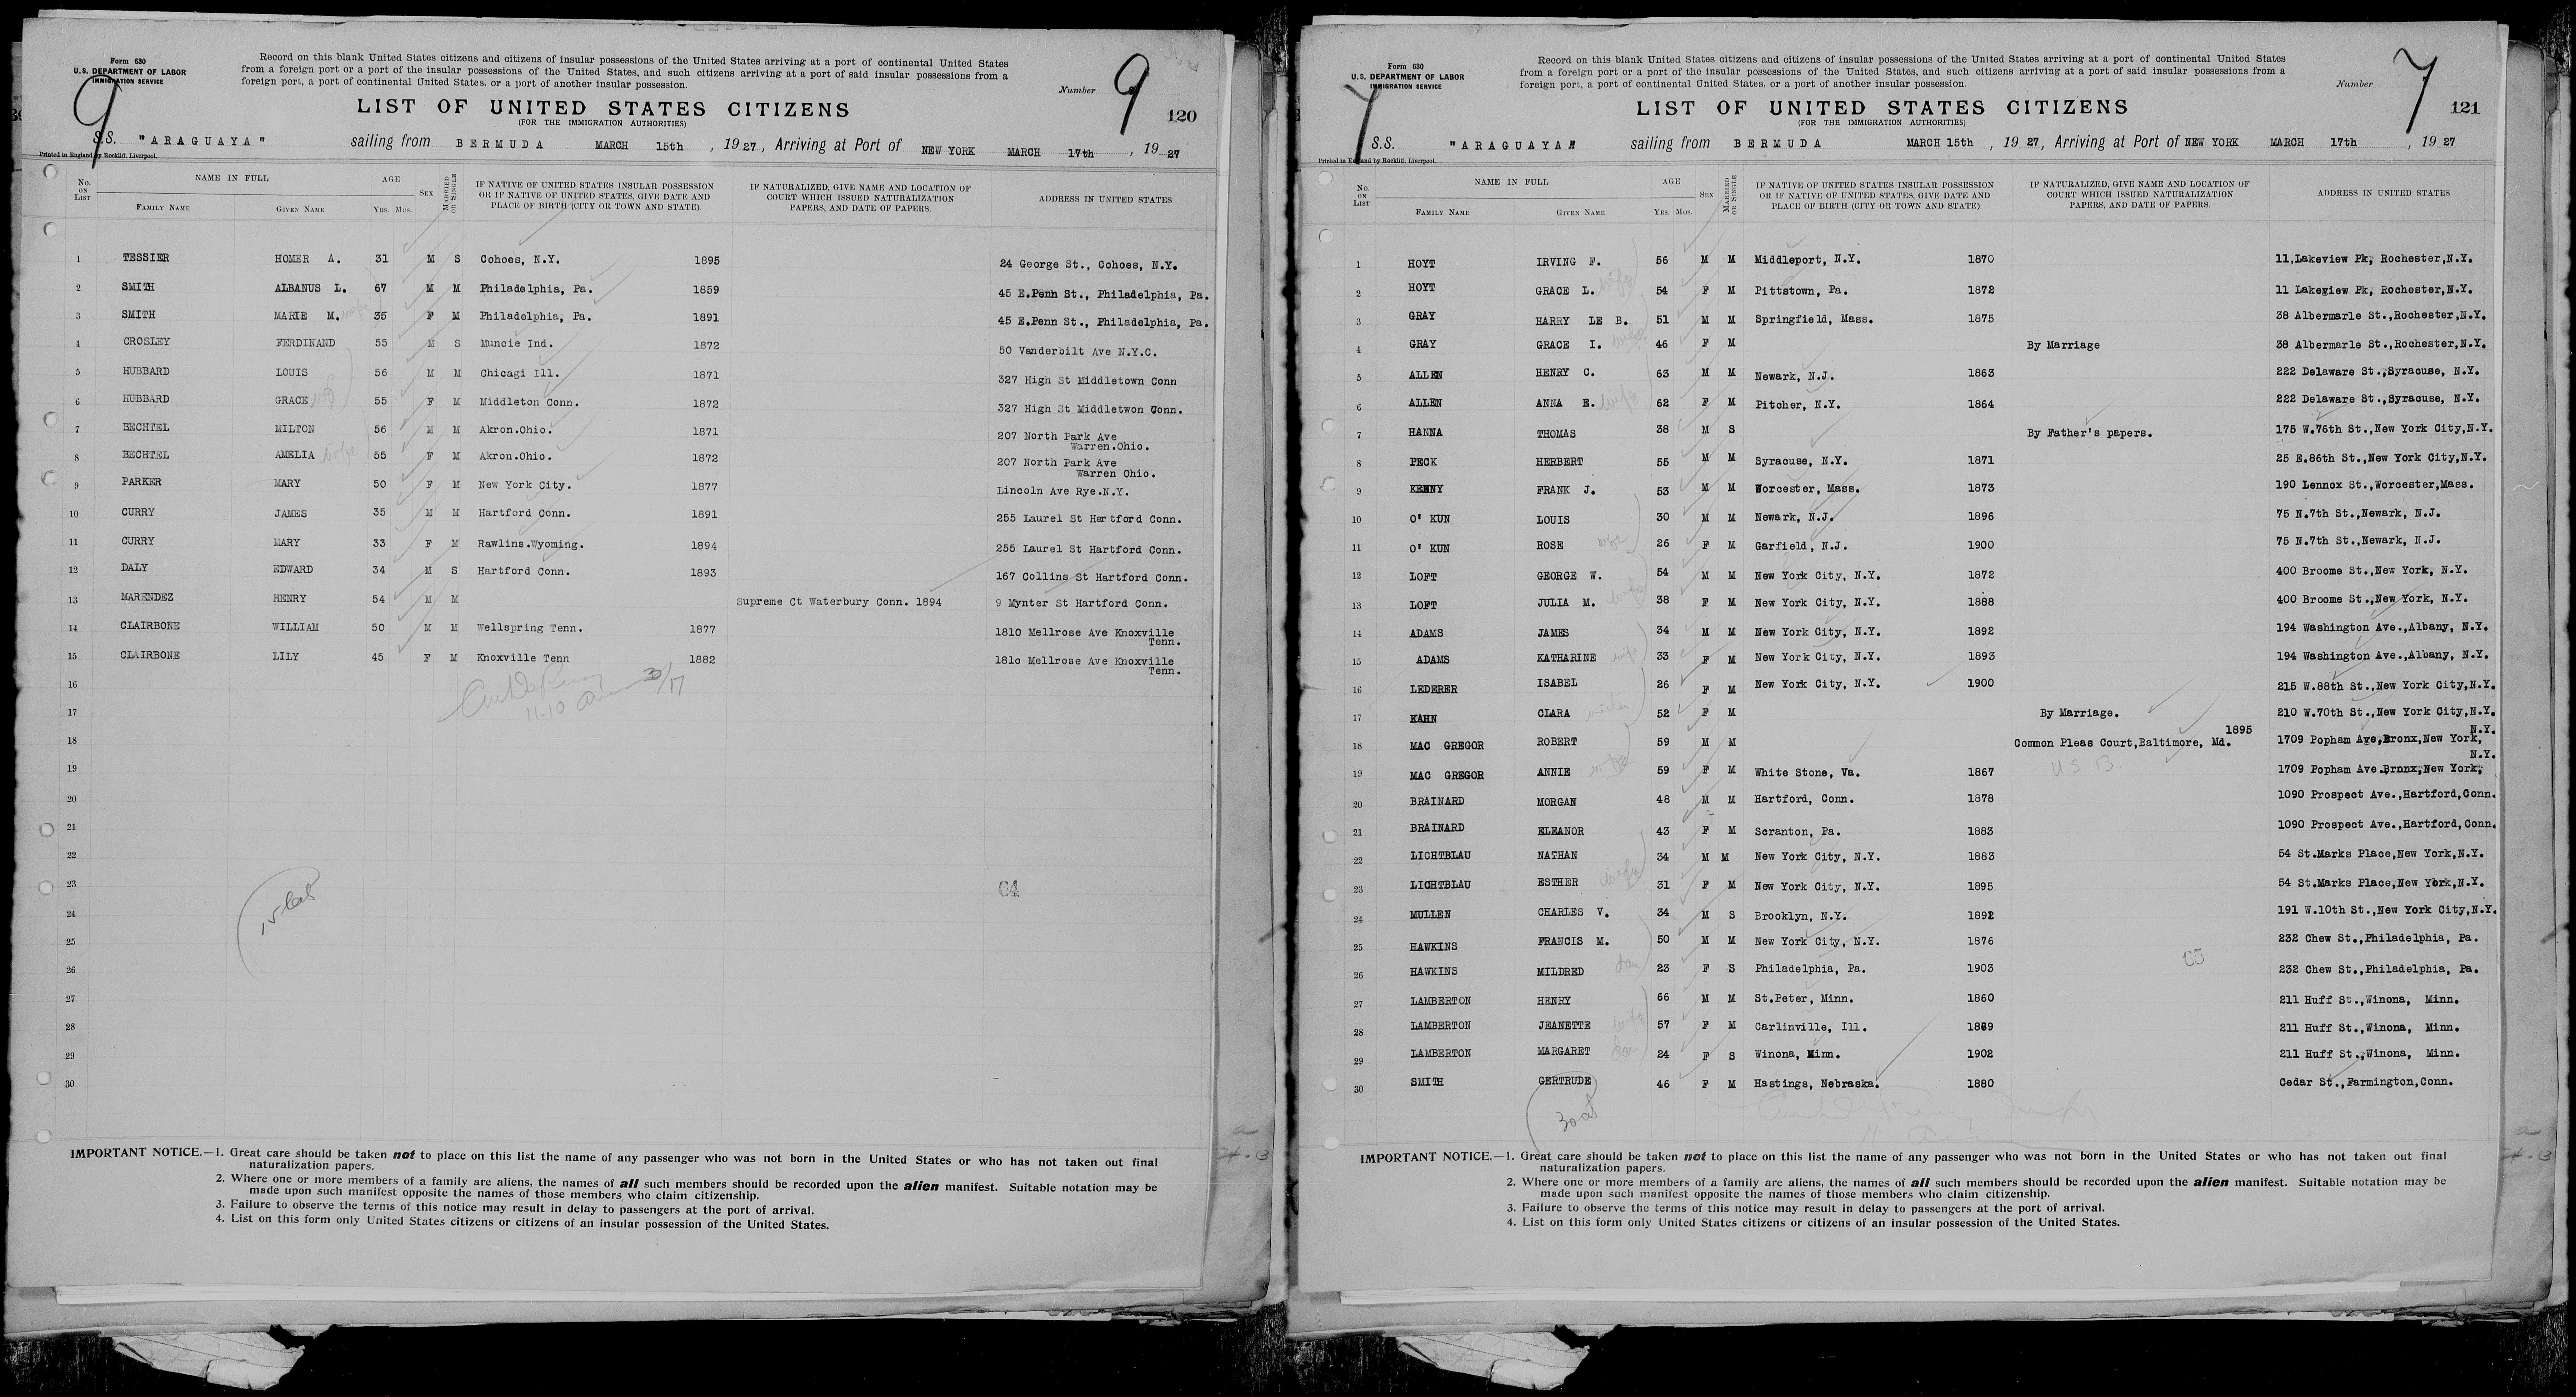 Form 630
U.S. DEPARTMENT OF LABOR
IMMIGRATION SERVICE
Record on this blank United States citizens and citizens of insular possessions of the United States arriving at a port of continental United States
from a foreign port or a port of the insular possessions of the United States, and such citizens arriving at a port of said insular possessions from a
foreign port, a port of continental United States, or a port of another insular possession.
Number 9
9
120
LIST OF UNITED STATES CITIZENS
(FOR THE IMMIGRATION AUTHORITIES)
S.S. "ARAGUAYA" sailing from BERMUDA MARCH 15th, 1927, Arriving at Port of NEW YORK MARCH 17th, 1927
Printed in England by Rockliff, Liverpool.
No. ON LIST NAME IN FULL FAMILY NAME GIVEN NAME AGE Yrs. Mos. SEX MARRIED OR SINGLE IF NATIVE OF UNITED STATES INSULAR POSSESSION OR IF NATIVE OF UNITED STATES, GIVE DATE AND PLACE OF BIRTH (CITY OR TOWN AND STATE). IF NATURALIZED, GIVE NAME AND LOCATION OF COURT WHICH ISSUED NATURALIZATION PAPERS, AND DATE OF PAPERS. ADDRESS IN UNITED STATES
1 TESSIER HOMER A. 31 M S Cohoes, N.Y. 1895 24 George St., Cohoes, N.Y.
2 SMITH ALBANUS L. 67 M M Philadelphia, Pa. 1859 45 E.Penn St., Philadelphia, Pa.
3 SMITH MARIE M. wife 35 F M Philadelphia, Pa. 1891 45 E.Penn St., Philadelphia, Pa.
4 CROSLEY FERDINAND 55 M S Muncie Ind. 1872 50 Vanderbilt Ave N.Y.C.
5 HUBBARD LOUIS 56 M M Chicagi Ill. 1871 327 High St Middletown Conn
6 HUBBARD GRACE 55 F M Middleton Conn. 1872 327 High St Middletwon Conn.
7 BECHTEL MILTON 56 M M Akron.Ohio. 1871 207 North Park Ave
Warren.Ohio.
8 BECHTEL AMELIA wife 55 F M Akron.Ohio. 1872 207 North Park Ave
Warren Ohio.
9 PARKER MARY 50 F M New York City. 1877 Lincoln Ave Rye.N.Y.
10 CURRY JAMES 35 M M Hartford Conn. 1891 255 Laurel St Hartford Conn.
11 CURRY MARY 33 F M Rawlins.Wyoming. 1894 255 Laurel St Hartford Conn.
12 DALY EDWARD 34 M S Hartford Conn. 1893 167 Collins St Hartford Conn.
13 MARENDEZ HENRY 54 M M Supreme Ct Waterbury Conn. 1894 9 Mynter St Hartford Conn.
14 CLAIRBONE WILLIAM 50 M M Wellspring Tenn. 1877 1810 Mellrose Ave Knoxville
Tenn.
15 CLAIRBONE LILY 45 F M Knoxville Tenn 1882 181o Mellrose Ave Knoxville
Tenn.
16
3/17
17
11.10
18
19
20
21
22
23
C4
24
25
26
27
28
29
30
IMPORTANT NOTICE.—1. Great care should be taken not to place on this list the name of any passenger who was not born in the United States or who has not taken out final
naturalization papers.
2. Where one or more members of a family are aliens, the names of all such members should be recorded upon the alien manifest. Suitable notation may be
made upon such manifest opposite the names of those members who claim citizenship.
3. Failure to observe the terms of this notice may result in delay to passengers at the port of arrival.
4. List on this form only United States citizens or citizens of an insular possession of the United States.
Form 630
U.S. DEPARTMENT OF LABOR
IMMIGRATION SERVICE
Record on this blank United States citizens and citizens of insular possessions of the United States arriving at a port of continental United States
from a foreign port or a port of the insular possessions of the United States, and such citizens arriving at a port of said insular possessions from a
foreign port, a port of continental United States, or a port of another insular possession.
Number 7
7
121
LIST OF UNITED STATES CITIZENS
(FOR THE IMMIGRATION AUTHORITIES)
S.S. "ARAGUAYA" sailing from BERMUDA MARCH 15th, 1927, Arriving at Port of NEW YORK MARCH 17th, 1927
Printed in England by Rockliff, Liverpool.
No. ON LIST NAME IN FULL FAMILY NAME GIVEN NAME AGE Yrs. Mos. SEX MARRIED OR SINGLE IF NATIVE OF UNITED STATES INSULAR POSSESSION OR IF NATIVE OF UNITED STATES, GIVE DATE AND PLACE OF BIRTH (CITY OR TOWN AND STATE). IF NATURALIZED, GIVE NAME AND LOCATION OF COURT WHICH ISSUED NATURALIZATION PAPERS, AND DATE OF PAPERS. ADDRESS IN UNITED STATES
1 HOYT IRVING F. 56 M M Middleport, N.Y. 1870 11,Lakeview Pk, Rochester,N.Y.
2 HOYT GRACE L. wife 54 F M Pittstown, Pa. 1872 11 Lakeview Pk, Rochester,N.Y.
3 GRAY HARRY LE B. 51 M M Springfield, Mass. 1875 38 Albermarle St.,Rochester,N.Y.
4 GRAY GRACE I. wife 46 F M By Marriage 38 Albermarle St.,Rochester,N.Y.
5 ALLEN HENRY C. 63 M M Newark, N.J. 1863 222 Delaware St.,Syracuse, N.Y.
6 ALLEN ANNA E. wife 62 F M Pitcher, N.Y. 1864 222 Delaware St.,Syracuse, N.Y.
7 HANNA THOMAS 38 M S By Father's papers. 175 W.76th St.,New York City,N.Y.
8 PECK HERBERT 55 M M Syracuse, N.Y. 1871 25 E.86th St.,New York City,N.Y.
9 KENNY FRANK J. 53 M M Worcester, Mass. 1873 190 Lennox St.,Worcester,Mass.
10 O' KUN LOUIS 30 M M Newark, N.J. 1896 75 N.7th St.,Newark, N.J.
11 O' KUN ROSE wife 26 F M Garfield, N.J. 1900 75 N.7th St.,Newark, N.J.
12 LOFT GEORGE W. 54 M M New York City, N.Y. 1872 400 Broome St.,New York, N.Y.
13 LOFT JULIA M. wife 38 F M New York City, N.Y. 1888 400 Broome St.,New York, N.Y.
14 ADAMS JAMES 34 M M New York City, N.Y. 1892 194 Washington Ave.,Albany, N.Y.
15 ADAMS KATHARINE wife 33 F M New York City, N.Y. 1893 194 Washington Ave.,Albany, N.Y.
16 LEDERER ISABEL 26 F M New York City, N.Y. 1900 215 W.88th St.,New York City,N.Y.
17 KAHN CLARA 52 F M By Marriage. 210 W.70th St.,New York City,N.Y.
1895 N.Y.
18 MAC GREGOR ROBERT 59 M M Common Pleas Court,Baltimore, Md. 1709 Popham Ave,Bronx,New York,
U S B. N.Y.
19 MAC GREGOR ANNIE wife 59 F M White Stone, Va. 1867 1709 Popham Ave.Brnnx,New York,
20 BRAINARD MORGAN 48 M M Hartford, Conn. 1878 1090 Prospect Ave.,Hartford,Conn.
21 BRAINARD ELEANOR 43 F M Scranton, Pa. 1883 1090 Prospect Ave.,Hartford,Conn.
22 LICHTBLAU NATHAN 34 M M New York City, N.Y. 1883 54 St.Marks Place,New York,N.Y.
23 LICHTBLAU ESTHER wife 31 F M New York City, N.Y. 1895 54 St.Marks Place,New York,N.Y.
24 MULLEN CHARLES V. 34 M S Brooklyn, N.Y. 1892 191 W.10th St.,New York City,N.Y.
25 HAWKINS FRANCIS M. 50 M M New York City, N.Y. 1876 232 Chew St.,Philadelphia, Pa.
26 HAWKINS MILDRED dau 23 F S Philadelphia, Pa. 1903 232 Chew St.,Philadelphia, Pa.
27 LAMBERTON HENRY 66 M M St.Peter, Minn. 1860 211 Huff St.,Winona, Minn.
28 LAMBERTON JEANETTE wife 57 F M Carlinville, Ill. 1869 211 Huff St.,Winona, Minn.
29 LAMBERTON MARGARET dau 24 F S Winona, Minn. 1902 211 Huff St.,Winona, Minn.
30 SMITH GERTRUDE 46 F M Hastings, Nebraska. 1880 Cedar St.,Farmington,Conn.
IMPORTANT NOTICE.—1. Great care should be taken not to place on this list the name of any passenger who was not born in the United States or who has not taken out final
naturalization papers.
2. Where one or more members of a family are aliens, the names of all such members should be recorded upon the alien manifest. Suitable notation may be
made upon such manifest opposite the names of those members who claim citizenship.
3. Failure to observe the terms of this notice may result in delay to passengers at the port of arrival.
4. List on this form only United States citizens or citizens of an insular possession of the United States.